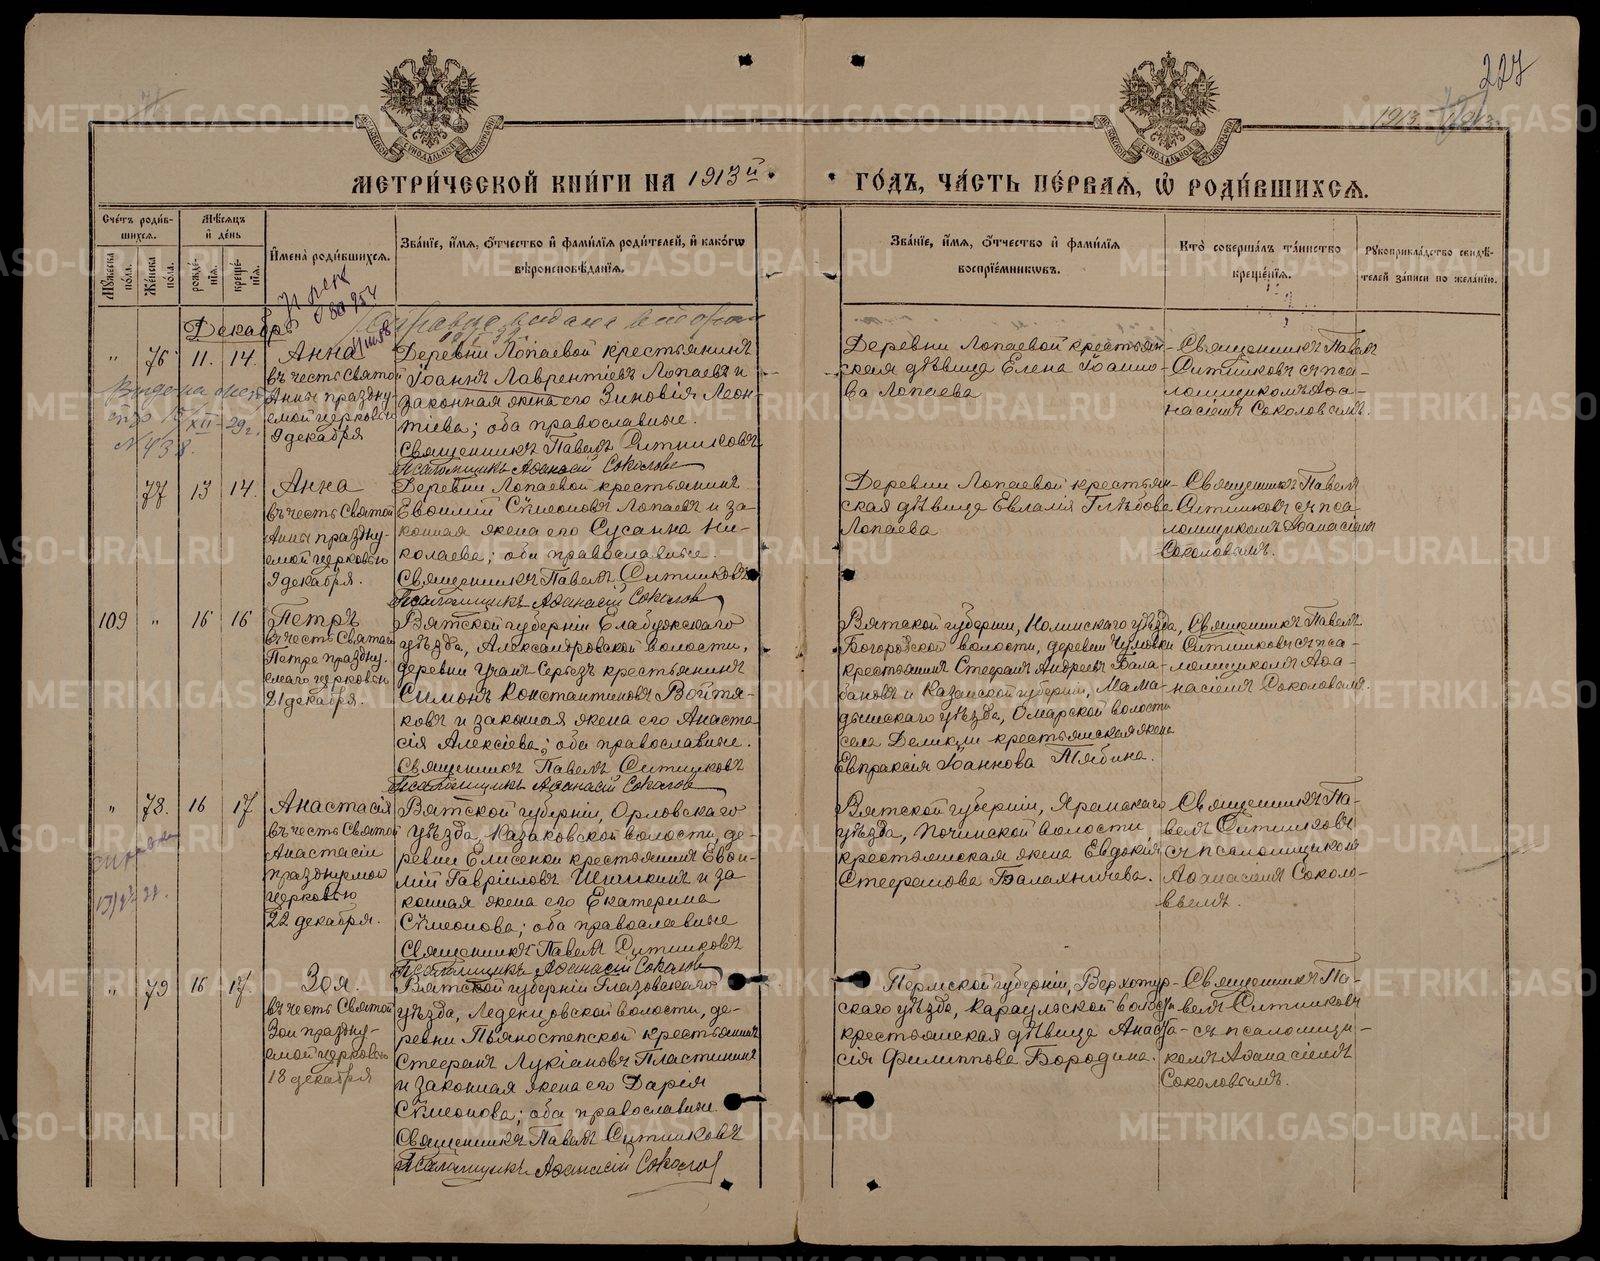 227
1913
МЕТРИ́ЧЕСКОЙ КНИ́ГИ НА 1913й
ГО́ДЪ, ЧА́СТЬ ПЕ́РВАЯ, Ѡ҆ РОДИ́ВШИХСЯ.
Сче́тъ роди́вшихся.
Мꙋ́жеска по́ла.
Же́нска по́ла.
Мѣ́сяцъ и҆ де́нь
рожде́нїя.
креще́нїя.
И҆мена̀ роди́вшихся.
Зва́нїе, и҆́мя, о҆́тчество и҆ фами́лїя роди́телей, и҆ како́гѡ
вѣроисповѣ́данїя.
Зва́нїе, и҆́мя, о҆́тчество и҆ фами́лїя
воспрїе́мникѡвъ.
Кто̀ соверша́лъ та́инство
креще́нїя.
Рꙋкоприкла́дство свидѣ́-
телей за́писи по жела́нїю.
Декабрь
" 76 11. 14.
Анна
въ честь Святой
Анны праздну-
емой церковью
9 декабря
Деревни Лопаевой крестьянинъ
Іоаннъ Лаврентіевъ Лопаевъ и
законная жена его Зиновія Леон-
тіева; оба православные.
Священникъ Павелъ Ситниковъ
Псаломщикъ Аѳанасій Соколовъ
Деревни Лопаевой крестьян-
ская дѣвица Елена Іоанно-
ва Лопаева
Священникъ Павелъ
Ситниковъ съ пса-
ломщикомъ Аѳа-
насіемъ Соколовымъ.
XII-29 г.
N 438.
77 13 14.
Анна
въ честь Святой
Анны праздну-
емой церковью
9 декабря.
Деревни Лопаевой крестьянинъ
Евѳимій Сѷмеоновъ Лопаевъ и за-
конная жена его Сусанна Ни-
колаева; оба православные.
Священникъ Павелъ Ситниковъ
Псаломщикъ Аѳанасій Соколовъ
Деревни Лопаевой крестьян-
ская дѣвица Евламія Глѣбова
Лопаева
Священникъ Павелъ
Ситниковъ съ пса-
ломщикомъ Аѳанасіемъ
Соколовымъ.
109 " 16 16
Петръ
въ честь Святаго
Петра праздну-
емаго церковью
21 декабря.
Вятской губерніи Елабужскаго
уѣзда, Александровской волости,
деревни Учанъ Сарьезъ крестьянинъ
Симонъ Константиновъ Войтя-
ковъ и законная жена его Анаста-
сія Алексіева; оба православные.
Священникъ Павелъ Ситниковъ
Псаломщикъ Аѳанасій Соколовъ
Вятской губерніи, Нолинскаго уѣзда,
Богородской волости, деревни
крестьянинъ Стефанъ Андреевъ Бала-
бановъ и Казанской губерніи, Мама-
дышскаго уѣзда, Омарской волости
села крестьянская жена
Евпраксія Іоаннова Тябина.
Священникъ Павелъ
Ситниковъ съ пса-
ломщикомъ Аѳа-
насіемъ Соколовымъ.
" 78. 16 17
Анастасія
въ честь Святой
Анастасіи
празднуемой
церковью
22 декабря.
Вятской губерніи, Орловскаго
уѣзда, Казаковской волости, де-
ревни Елисенки крестьянинъ Евѳи-
мій Гавріиловъ Шишкинъ и за
конная жена его Екатерина
Сѷмеонова; оба православные
Священникъ Павелъ Ситниковъ
Псаломщикъ Аѳанасій Соколовъ
Вятской губерніи, Яранскаго
уѣзда, Починской волости,
крестьянская жена Евдокія
Стефанова Балахничева.
Священникъ Па-
велъ Ситниковъ
съ псаломщикомъ
Аѳанасіемъ Соколо-
вымъ.
" 79 16 17.
Зоя.
въ честь Святой
Зои праздну-
емой церковью
18 декабря
Вятской губерніи Глазовскаго
уѣзда, Леденцовской волости, де-
ревни Пьяностепской крестьянинъ
Стефанъ Лукіановъ Пластининъ
и законная жена его Дарія
Сѷмеонова; оба православные.
Священникъ Павелъ Ситниковъ
Псаломщикъ Аѳанасій Соколовъ
Пермской губерніи, Верхотур-
скаго уѣзда, Караульской волости
крестьянская дѣвица Анаста-
сія Филиппова Бородина.
Священникъ Па-
велъ Ситниковъ
съ псаломщи-
комъ Аѳанасіемъ
Соколовымъ.
METRIKI.GASO-URAL.RU